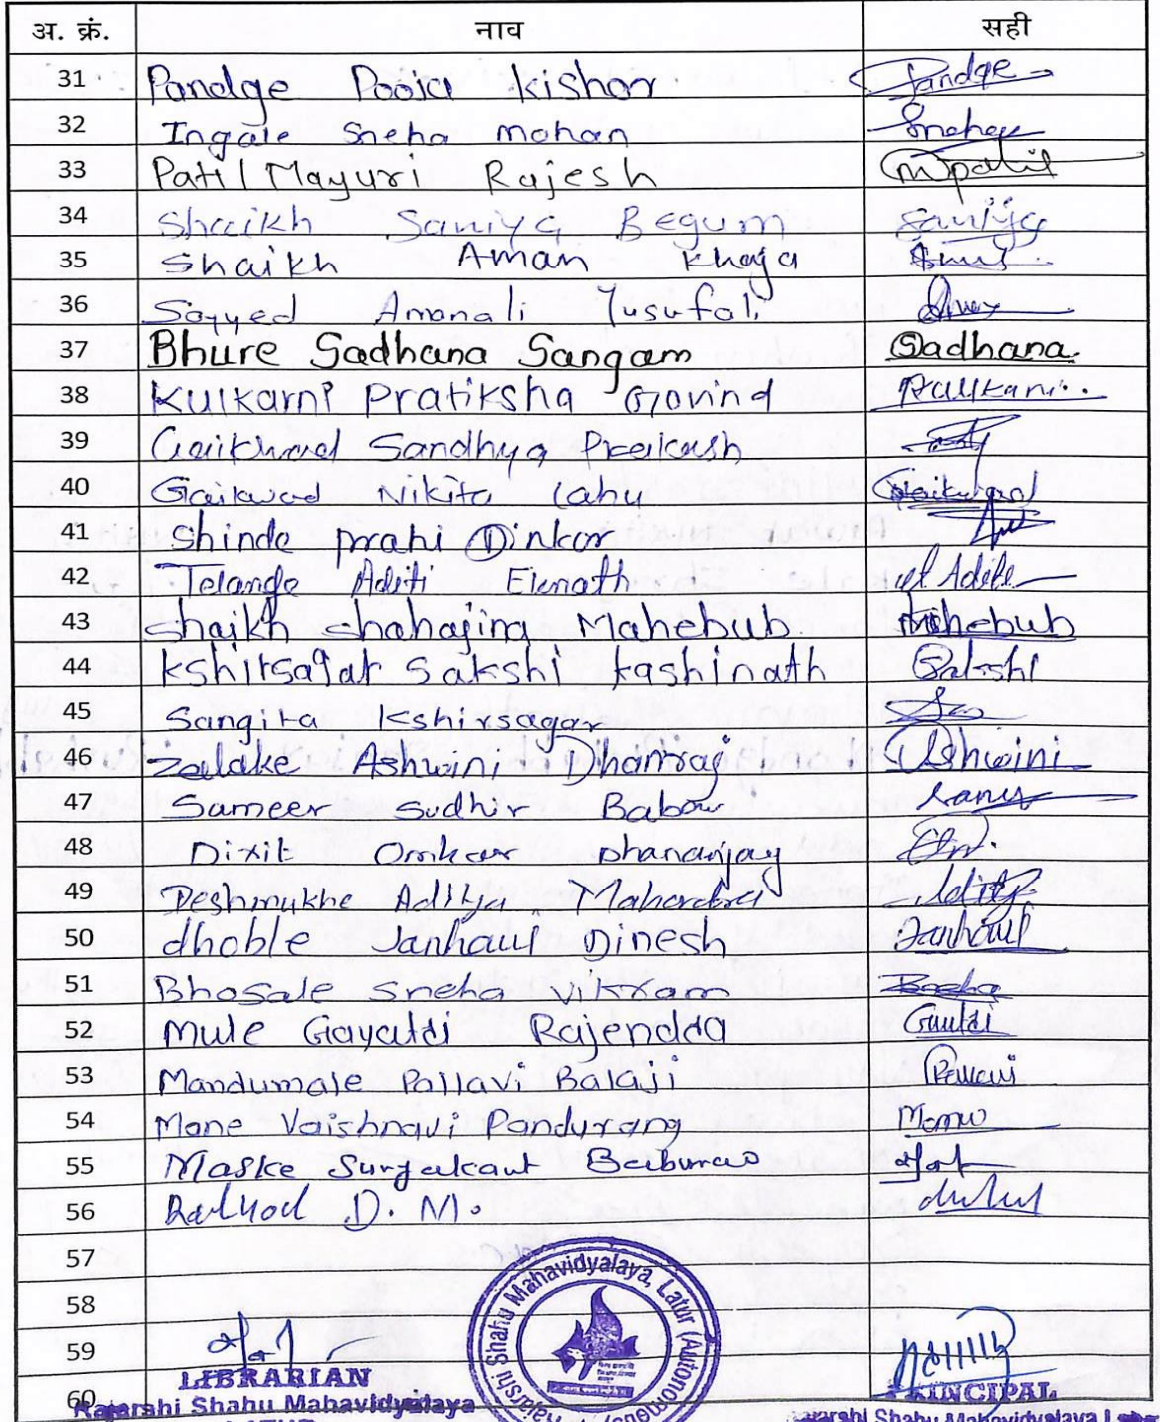 अ. क्रं. नाव सही
31 Pandge Pooja Kishor Pandge
32 Ingale Sneha Mohan Sneha
33 Patil Mayuri Rajesh mpatil
34 Shaikh Saniya Begum Saniya
35 Shaikh Aman Khaja
36 Sayyed Amanali Yusufali
37 Bhure Sadhana Sangam Sadhana
38 Kulkarni Pratiksha Govind Pkulkarni
39 Gaikwad Sandhya Prakash
40 Gaikwad Nikita Lahu Gaikwad
41 Shinde Dinkar
42 Telange Aditi Eknath Aditi
43 Shaikh Mahebub Mahebub
44 Kshirsagar Sakshi Kashinath Sakshi
45 Sangita Kshirsagar
46 Zalake Ashwini Dhanraj Ashwini
47 Sameer Sudhir
48 Dixit Omkar Dhananjay
49 Deshmukhe Aditya Aditya
50 dhoble Janhavi Dinesh Janhavi
51 Bhosale Sneha Vikram Sneha
52 Mule Gayatri Rajendra
53 Mandumale Pallavi Balaji Pallavi
54 Mane Vaishnavi Pandurang
55 Maske Suryakant Baburao
56 Rathod D. M.
57
58
59
60
LIBRARIAN PRINCIPAL
Rajarshi Shahu Mahavidyalaya
Rajarshi Shahu Mahavidyalaya, Latur (Autonomous)